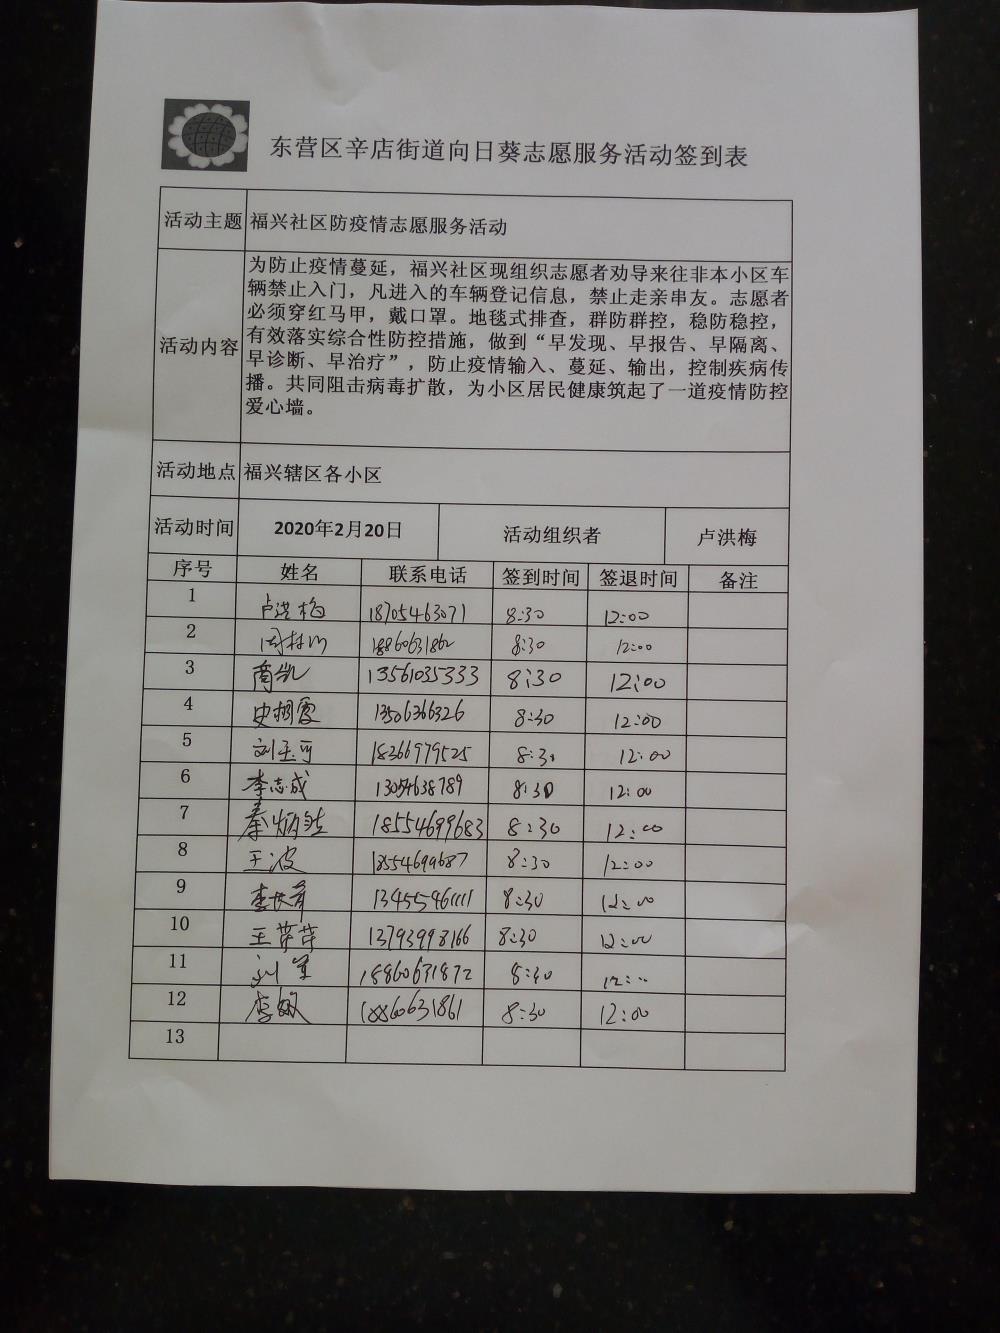 东营区辛店街道向日葵志愿服务活动签到表
活动主题 福兴社区防疫情志愿服务活动
活动内容
为防止疫情蔓延，福兴社区现组织志愿者劝导来往非本小区车
辆禁止入门，凡进入的车辆登记信息，禁止走亲串友。志愿者
必须穿红马甲，戴口罩。地毯式排查，群防群控，稳防稳控，
有效落实综合性防控措施，做到“早发现、早报告、早隔离、
早诊断、早治疗”，防止疫情输入、蔓延、输出，控制疾病传
播。共同阻击病毒扩散，为小区居民健康筑起了一道疫情防控
爱心墙。
活动地点 福兴辖区各小区
活动时间 2020年2月20日 活动组织者 卢洪梅
序号 姓名 联系电话 签到时间 签退时间 备注
1 卢洪梅 18705463071 8:30 12:00
2 18860631862 8:30 12:00
3 商凯 13561035333 8:30 12:00
4 13506366326 8:30 12:00
5 刘玉可 18366979525 8:30 12:00
6 李志成 13054638789 8:30 12:00
7 18554699683 8:30 12:00
8 王波 18554699687 8:30 12:00
9 13455461111 8:30 12:00
10 王芹芹 13793998166 8:30 12:00
11 刘军 18860631872 8:30 12:00
12 18860631861 8:30 12:00
13